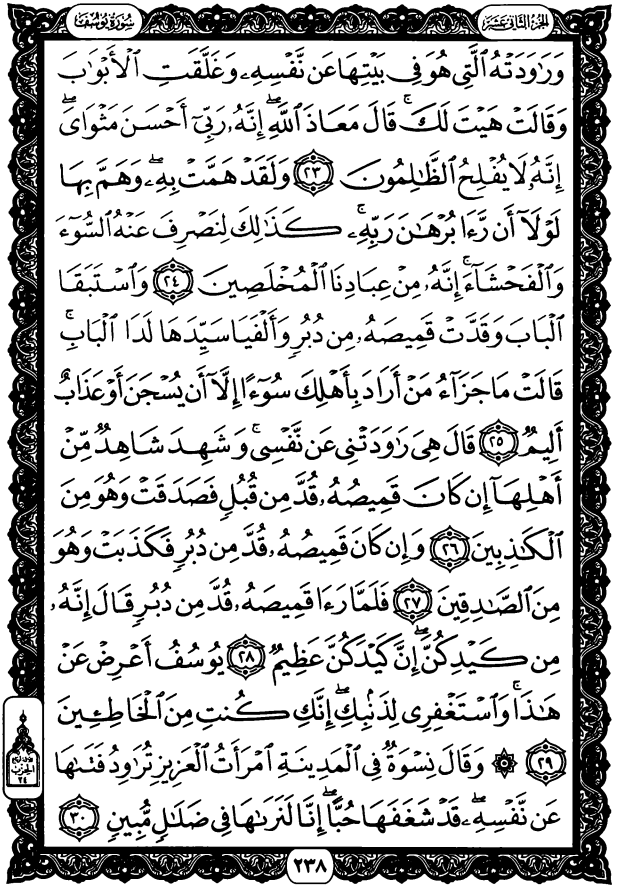 سُورَةُ يُوسُفَ
الجُزْءُ الثَّانِي عَشَرَ
وَرَٰوَدَتْهُ ٱلَّتِى هُوَ فِى بَيْتِهَا عَن نَّفْسِهِۦ وَغَلَّقَتِ ٱلْأَبْوَٰبَ
وَقَالَتْ هَيْتَ لَكَ ۚ قَالَ مَعَاذَ ٱللَّهِ ۖ إِنَّهُۥ رَبِّىٓ أَحْسَنَ مَثْوَاىَ ۖ
إِنَّهُۥ لَا يُفْلِحُ ٱلظَّـٰلِمُونَ ٢٣ وَلَقَدْ هَمَّتْ بِهِۦ ۖ وَهَمَّ بِهَا
لَوْلَآ أَن رَّءَا بُرْهَـٰنَ رَبِّهِۦ ۚ كَذَٰلِكَ لِنَصْرِفَ عَنْهُ ٱلسُّوٓءَ
وَٱلْفَحْشَآءَ ۚ إِنَّهُۥ مِنْ عِبَادِنَا ٱلْمُخْلَصِينَ ٢٤ وَٱسْتَبَقَا
ٱلْبَابَ وَقَدَّتْ قَمِيصَهُۥ مِن دُبُرٍ وَأَلْفَيَا سَيِّدَهَا لَدَا ٱلْبَابِ ۚ
قَالَتْ مَا جَزَآءُ مَنْ أَرَادَ بِأَهْلِكَ سُوٓءًا إِلَّآ أَن يُسْجَنَ أَوْ عَذَابٌ
أَلِيمٌ ٢٥ قَالَ هِىَ رَٰوَدَتْنِى عَن نَّفْسِى ۚ وَشَهِدَ شَاهِدٌ مِّنْ
أَهْلِهَآ إِن كَانَ قَمِيصُهُۥ قُدَّ مِن قُبُلٍ فَصَدَقَتْ وَهُوَ مِنَ
ٱلْكَـٰذِبِينَ ٢٦ وَإِن كَانَ قَمِيصُهُۥ قُدَّ مِن دُبُرٍ فَكَذَبَتْ وَهُوَ
مِنَ ٱلصَّـٰدِقِينَ ٢٧ فَلَمَّا رَءَا قَمِيصَهُۥ قُدَّ مِن دُبُرٍ قَالَ إِنَّهُۥ
مِن كَيْدِكُنَّ ۖ إِنَّ كَيْدَكُنَّ عَظِيمٌ ٢٨ يُوسُفُ أَعْرِضْ عَنْ
هَـٰذَا ۚ وَٱسْتَغْفِرِى لِذَنۢبِكِ ۖ إِنَّكِ كُنتِ مِنَ ٱلْخَاطِـِٔينَ
٢٩ ۞ وَقَالَ نِسْوَةٌ فِى ٱلْمَدِينَةِ ٱمْرَأَتُ ٱلْعَزِيزِ تُرَٰوِدُ فَتَىٰهَا
عَن نَّفْسِهِۦ ۖ قَدْ شَغَفَهَا حُبًّا ۖ إِنَّا لَنَرَىٰهَا فِى ضَلَـٰلٍ مُّبِينٍ ٣٠
الحِزْب
٢٤
٢٣٨